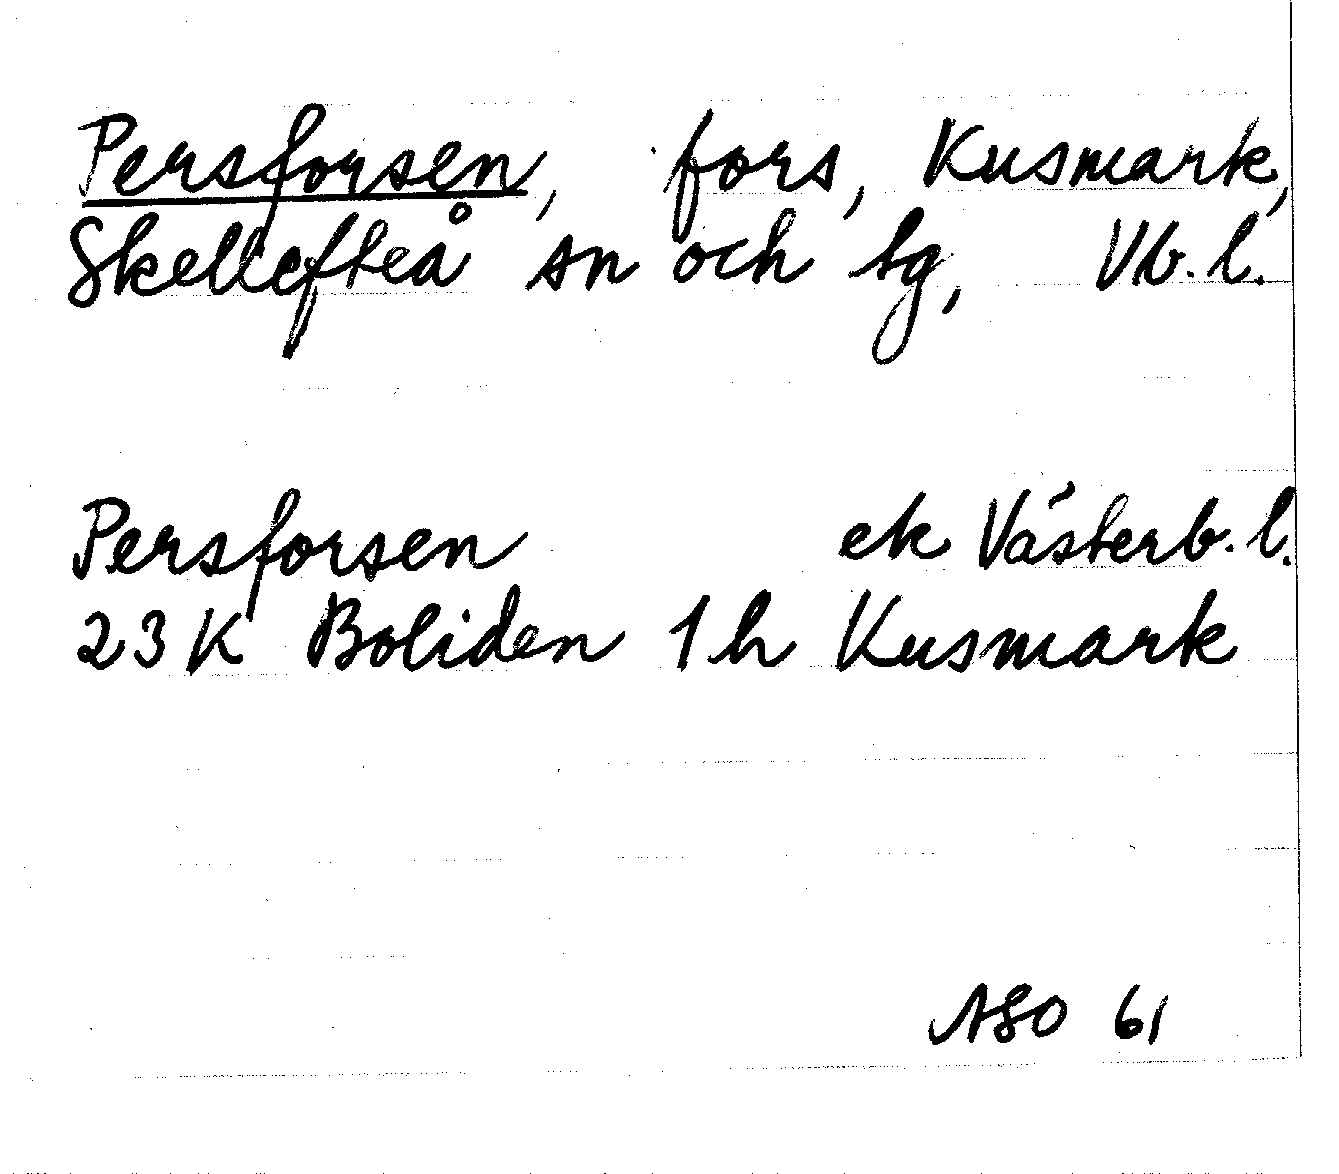 Persforsen, fors, Kusmark,
Skellefteå sn och tg, Vb. l.
Persforsen ek Västerb. l.
23 K Boliden 1 h Kusmark
ASO 61